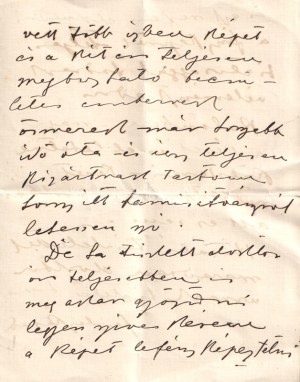 vett több ízben Képet
és a kit én teljesen
megbízható becsü-
letes embernek
ösmerek már hosszabb
idő óta és így teljesen
kizártnak tartom
hogy itt hamisítványról
lehessen szó.
De ha tisztelt doktor
úr teljesebben is
meg akar győződni
legyen szives kérem
a Képet lefényképeztetni